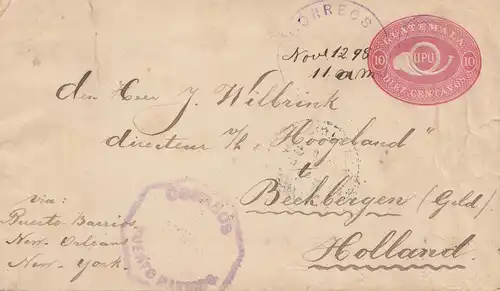 CORREOS
Nov. 12. 98
11 a m
GUATEMALA
10 UPU 10
DIEZ CENTAVOS
den Heer J. Wilbrink
directeur v/h „Hoogeland"
te
Beekbergen (Geld.)
Holland.
via:
Puerto Barrios
New-Orleans
New-York.
CORREOS
PUERTO BARRIOS